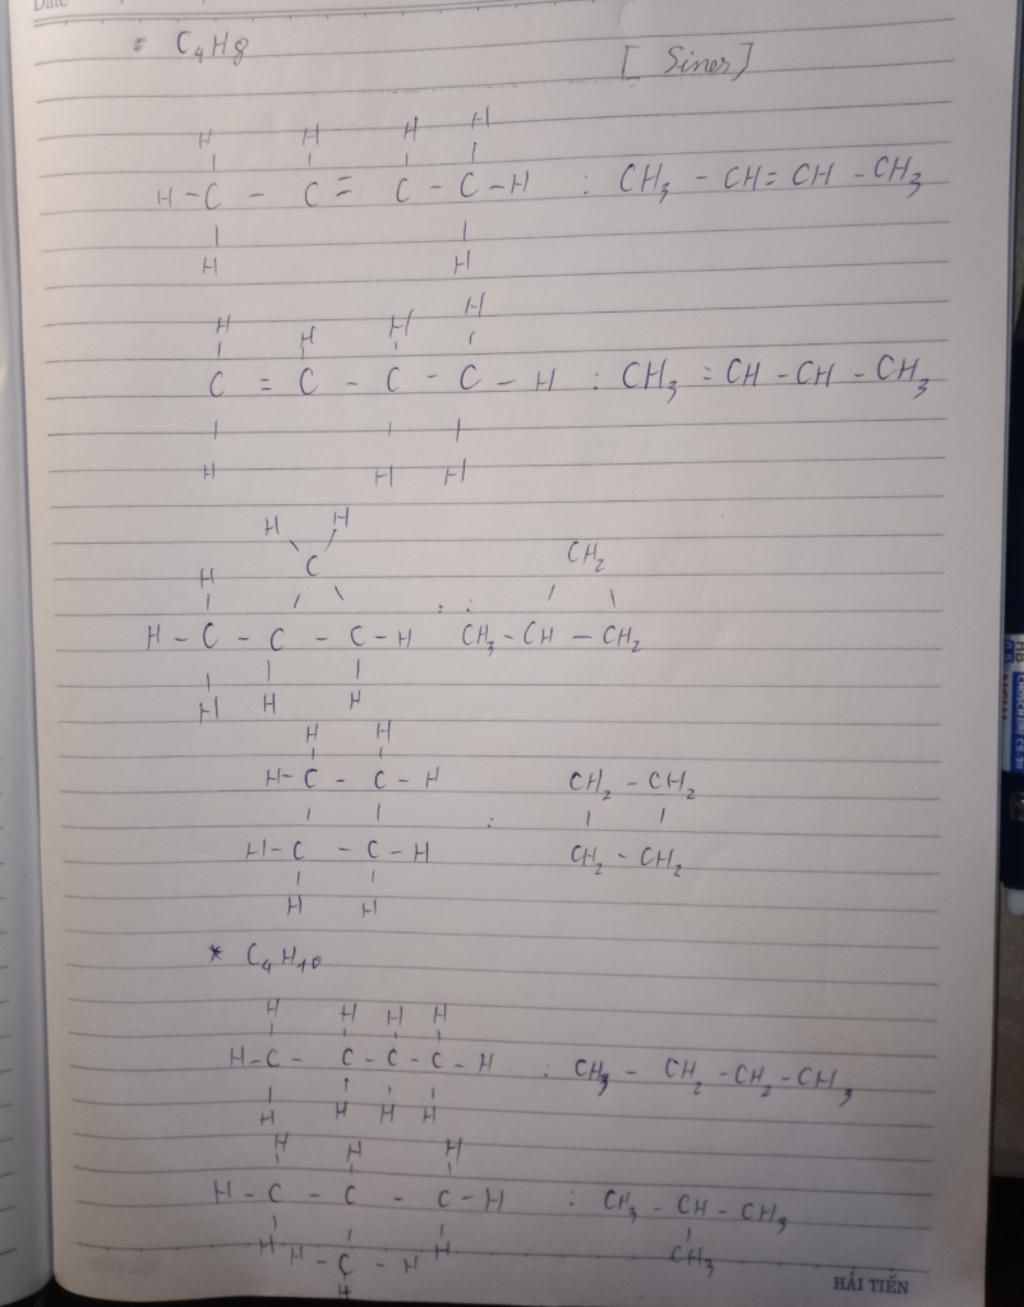 Date
* C4H8
[ Siner]
H H H H
H - C - C = C - C - H : CH3 - CH = CH - CH3
H H
H H H H
C = C - C - C - H : CH3 = CH - CH - CH3
H H H
H H
C CH2
H
H - C - C - C - H : CH3 - CH - CH2
H H H
H H
H - C - C - H CH2 - CH2
:
H - C - C - H CH2 - CH2
H H
* C4H10
H H H H
H - C - C - C - C - H : CH3 - CH2 - CH2 - CH3
H H H H
H H H
H - C - C - C - H : CH3 - CH - CH3
H H - C - H H CH3
H
HẢI TIẾN